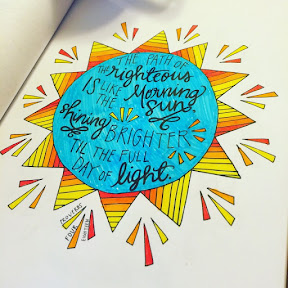 THE PATH OF
THE righteous
IS LIKE Morning
THE SUN,
shining
BRIGHTER
'TIL THE FULL
DAY OF light.
PROVERBS
FOUR
EIGHTEEN